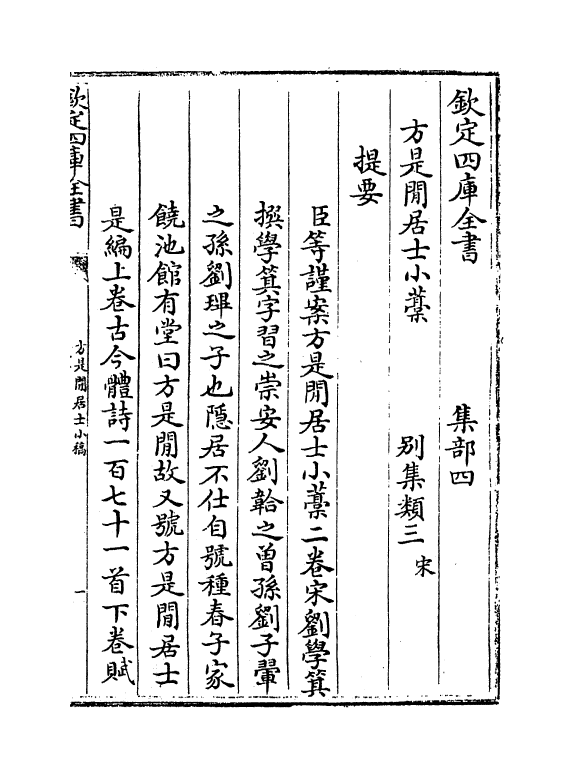 欽定四庫全書　集部四
方是閒居士小藳　別集類三　宋
提要
臣等謹案方是閒居士小藳二卷宋劉學箕
撰學箕字習之崇安人劉韐之曾孫劉子翬
之孫劉玶之子也隱居不仕自號種春子家
饒池館有堂曰方是閒故又號方是閒居士
是編上卷古今體詩一百七十一首下卷賦
欽定四庫全書
方是閒居士小稿
一